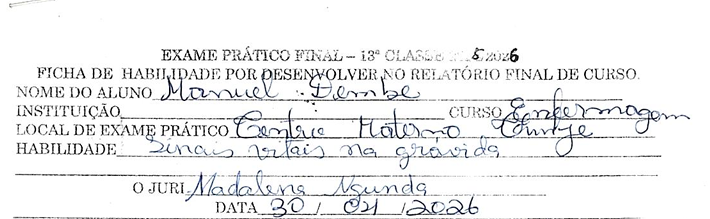 EXAME PRÁTICO FINAL – 13ª CLASSE 2025/2026
FICHA DE HABILIDADE POR DESENVOLVER NO RELATÓRIO FINAL DE CURSO.
NOME DO ALUNO Manuel Dembe
INSTITUIÇÃO CURSO Enfermagem
LOCAL DE EXAME PRÁTICO Centro Materno
HABILIDADE Sinais vitais na grávida
O JURI Madalena Ngunda
DATA 30 / 04 / 2026